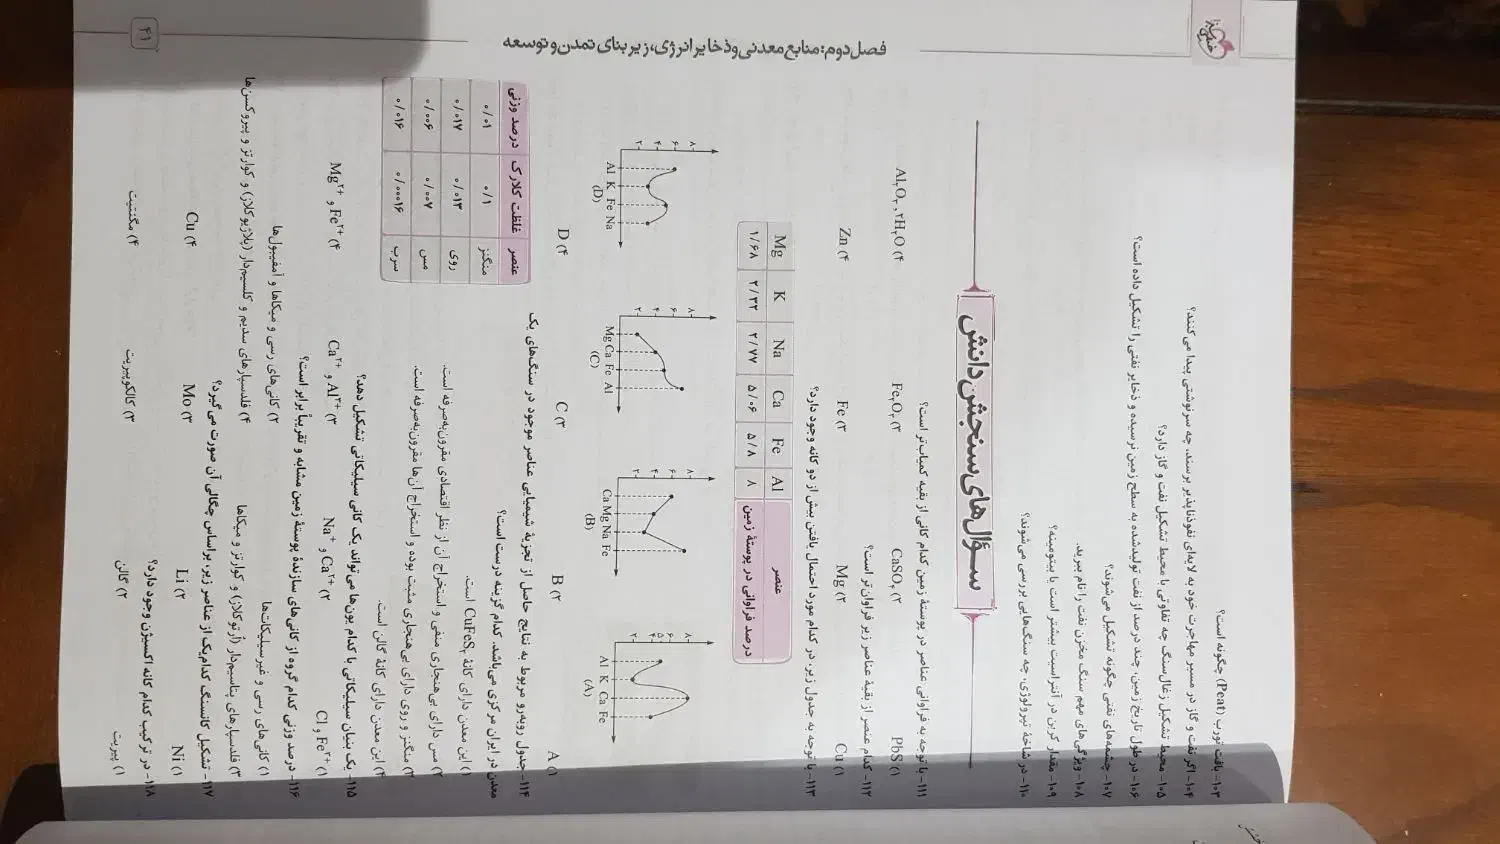 فصل دوم: منابع معدنی و ذخایر انرژی، زیربنای تمدن و توسعه
۴۱
۱۰۳- بافت تورب (Peat) چگونه است؟
۱۰۴- اگر نفت و گاز در مسیر مهاجرت خود به لایه‌ای نفوذناپذیر برسند، چه سرنوشتی پیدا می‌کنند؟
۱۰۵- محیط تشکیل زغال‌سنگ چه تفاوتی با محیط تشکیل نفت و گاز دارد؟
۱۰۶- در طول تاریخ زمین، چند درصد از نفت تولیدشده به سطح زمین نرسیده و ذخایر نفتی را تشکیل داده است؟
۱۰۷- چشمه‌های نفتی چگونه تشکیل می‌شوند؟
۱۰۸- ویژگی‌های مهم سنگ مخزن نفت را نام ببرید.
۱۰۹- مقدار کربن در آنتراسیت بیشتر است یا بیتومینه؟
۱۱۰- در شاخهٔ پترولوژی، چه سنگ‌هایی بررسی می‌شوند؟
سؤال‌های سنجش دانش
۱۱۱- با توجه به فراوانی عناصر در پوستهٔ زمین کدام کانی از بقیه کمیاب‌تر است؟
۱) PbS ۲) CaSO۴ ۳) Fe۲O۳ ۴) Al۲O۳ , ۲H۲O
۱۱۲- کدام عنصر از بقیهٔ عناصر زیر فراوان‌تر است؟
۱) Cu ۲) Mg ۳) Fe ۴) Zn
۱۱۳- با توجه به جدول زیر، در کدام مورد احتمال یافتن بیش از دو کانه وجود دارد؟
عنصر Al Fe Ca Na K Mg
درصد فراوانی در پوستهٔ زمین ۸ ۵/۸ ۵/۰۶ ۲/۷۷ ۲/۳۳ ۱/۶۸
۸ ۶ ۵ ۴ ۲ Al K Ca Fe (A)
۸ ۶ ۴ ۲ Ca Mg Na Fe (B)
۸ ۶ ۴ ۲ Mg Ca Fe Al (C)
۸ ۶ ۴ ۲ Al K Fe Na (D)
۱) A ۲) B ۳) C ۴) D
۱۱۴- جدول روبه‌رو مربوط به نتایج حاصل از تجزیهٔ شیمیایی عناصر موجود در سنگ‌های یک
معدن در ایران مرکزی می‌باشد. کدام گزینه درست است؟
۱) این معدن دارای کانهٔ CuFeS۲ است.
۲) مس دارای بی‌هنجاری منفی و استخراج آن از نظر اقتصادی مقرون‌به‌صرفه است.
۳) منگنز و روی دارای بی‌هنجاری مثبت بوده و استخراج آن‌ها مقرون‌به‌صرفه است.
۴) این معدن دارای کانهٔ گالن است.
عنصر غلظت کلارک درصد وزنی
منگنز ۰/۱ ۰/۰۱
روی ۰/۰۱۳ ۰/۰۱۷
مس ۰/۰۰۷ ۰/۰۰۶
سرب ۰/۰۰۰۱۶ ۰/۰۱۶
۱۱۵- یک بنیان سیلیکاتی با کدام یون‌ها می‌تواند یک کانی سیلیکاتی تشکیل دهد؟
۱) Fe۲+ و Cl ۲) Ca۲+ و Na+ ۳) Al۳+ و Ca۲+ ۴) Fe۲+ و Mg۲+
۱۱۶- درصد وزنی کدام گروه از کانی‌های سازندهٔ پوستهٔ زمین مشابه و تقریباً برابر است؟
۱) کانی‌های رسی و غیرسیلیکات‌ها
۲) کانی‌های رسی و میکاها و آمفیبول‌ها
۳) فلدسپارهای پتاسیم‌دار (ارتوکلاز) و کوارتز و میکاها
۴) فلدسپارهای سدیم و کلسیم‌دار (پلاژیوکلاز) و کوارتز و پیروکسن‌ها
۱۱۷- تشکیل کانسنگ کدام‌یک از عناصر زیر، براساس چگالی آن صورت می‌گیرد؟
۱) Ni ۲) Li ۳) Mo ۴) Cu
۱۱۸- در ترکیب کدام کانه اکسیژن وجود دارد؟
۱) پیریت ۲) گالن ۳) کالکوپیریت ۴) مگنتیت